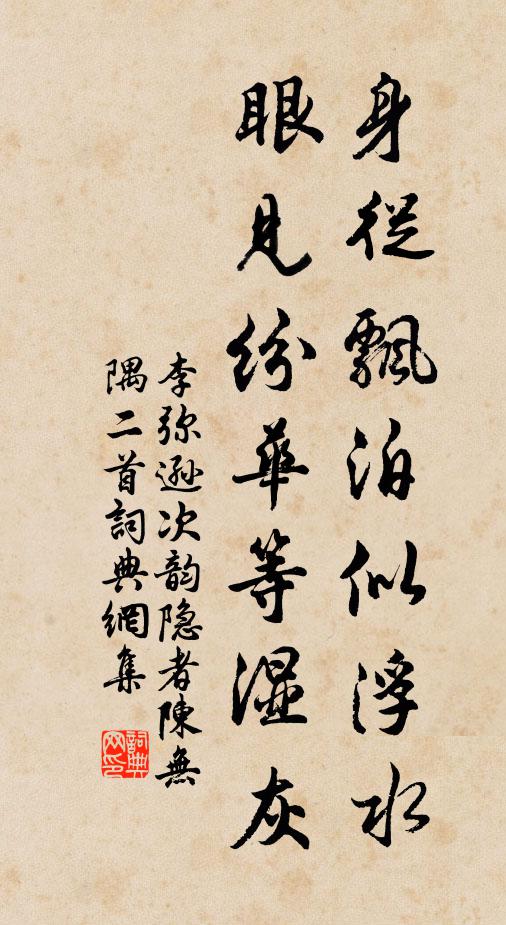 身從飄泊似浮水
眼見紛華等湿灰
李弥遜次韵隐者陳無
隅二首詞典網集
詞典
网印